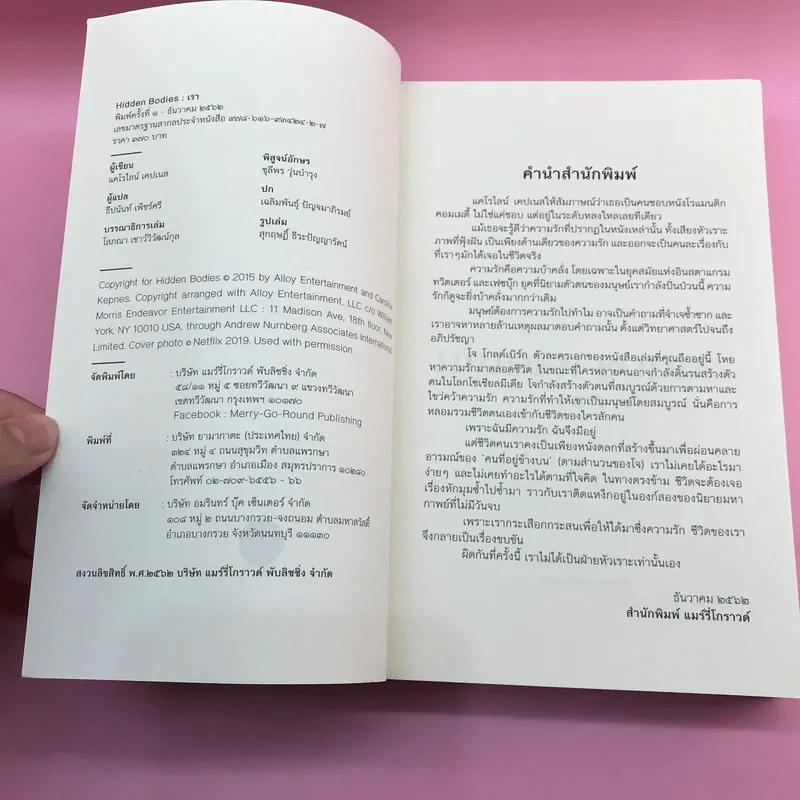 Hidden Bodies : เรา
พิมพ์ครั้งที่ ๑ - ธันวาคม ๒๕๖๒
เลขมาตรฐานสากลประจำหนังสือ ๙๗๘-๖๑๖-๙๓๔๒๔-๒-๗
ราคา ๓๗๐ บาท
ผู้เขียน
แคโรไลน์ เคปเนส
ผู้แปล
ธีปนันท์ เพ็ชร์ศรี
บรรณาธิการเล่ม
โสภณา เชาว์วิวัฒน์กุล
พิสูจน์อักษร
ชุลีพร วุ่นบำรุง
ปก
เฉลิมพันธุ์ ปัญจมาภิรมย์
รูปเล่ม
สุกฤษฏิ์ ธีระปัญญารัตน์
Copyright for Hidden Bodies © 2015 by Alloy Entertainment and Caroline
Kepnes. Copyright arranged with Alloy Entertainment, LLC c/o William
Morris Endeavor Entertainment LLC : 11 Madison Ave, 18th floor, New
York, NY 10010 USA. through Andrew Nurnberg Associates International
Limited. Cover photo © Netflix 2019. Used with permission
จัดพิมพ์โดย : บริษัท แมร์รี่โกราวด์ พับลิชชิ่ง จำกัด
๕๘/๑๑ หมู่ ๕ ซอยทวีวัฒนา ๙ แขวงทวีวัฒนา
เขตทวีวัฒนา กรุงเทพฯ ๑๐๑๗๐
Facebook : Merry-Go-Round Publishing
พิมพ์ที่ : บริษัท ยามากาตะ (ประเทศไทย) จำกัด
๓๒๔ หมู่ ๔ ถนนสุขุมวิท ตำบลแพรกษา
ตำบลแพรกษา อำเภอเมือง สมุทรปราการ ๑๐๒๘๐
โทรศัพท์ ๐๒-๗๐๙-๖๕๕๖ - ๖๖
จัดจำหน่ายโดย : บริษัท อมรินทร์ บุ๊ค เซ็นเตอร์ จำกัด
๑๐๘ หมู่ ๒ ถนนบางกรวย-จงถนอม ตำบลมหาสวัสดิ์
อำเภอบางกรวย จังหวัดนนทบุรี ๑๑๑๓๐
สงวนลิขสิทธิ์ พ.ศ.๒๕๖๒ บริษัท แมร์รี่โกราวด์ พับลิชชิ่ง จำกัด
คำนำสำนักพิมพ์
แคโรไลน์ เคปเนสให้สัมภาษณ์ว่าเธอเป็นคนชอบหนังโรแมนติก
คอมเมดี้ ไม่ใช่แค่ชอบ แต่อยู่ในระดับหลงใหลเลยทีเดียว
แม้เธอจะรู้ดีว่าความรักที่ปรากฏในหนังเหล่านั้น ทั้งเสียงหัวเราะ
ภาพที่ฟุ้งฝัน เป็นเพียงด้านเดียวของความรัก และออกจะเป็นคนละเรื่องกับ
ที่เราๆมักได้เจอในชีวิตจริง
ความรักคือความบ้าคลั่ง โดยเฉพาะในยุคสมัยแห่งอินสตาแกรม
ทวิตเตอร์ และเฟซบุ๊ก ยุคที่นิยามตัวตนของมนุษย์เรากำลังปั่นป่วนนี้ ความ
รักก็ดูจะยิ่งบ้าคลั่งมากกว่าเดิม
มนุษย์ต้องการความรักไปทำไม อาจเป็นคำถามที่จำเจซ้ำซาก และ
เราอาจหาหลายล้านเหตุผลมาตอบคำถามนั้น ตั้งแต่วิทยาศาสตร์ไปจนถึง
อภิปรัชญา
โจ โกลด์เบิร์ก ตัวละครเอกของหนังสือเล่มที่คุณถืออยู่นี้ โหย
หาความรักมาตลอดชีวิต ในขณะที่ใครหลายคนอาจกำลังดิ้นรนสร้างตัว
ตนในโลกโซเชียลมีเดีย โจกำลังสร้างตัวตนที่สมบูรณ์ด้วยการตามหาและ
ไขว่คว้าความรัก ความรักที่ทำให้เขาเป็นมนุษย์โดยสมบูรณ์ นั่นคือการ
หลอมรวมชีวิตตนเองเข้ากับชีวิตของใครสักคน
เพราะฉันมีความรัก ฉันจึงมีอยู่
แต่ชีวิตคนเราคงเป็นเพียงหนังตลกที่สร้างขึ้นมาเพื่อผ่อนคลาย
อารมณ์ของ ‘คนที่อยู่ข้างบน’ (ตามสำนวนของโจ) เราไม่เคยได้อะไรมา
ง่ายๆ และไม่เคยทำอะไรได้ตามที่ใจคิด ในทางตรงข้าม ชีวิตจะต้องเจอ
เรื่องหักมุมซ้ำไปซ้ำมา ราวกับเราติดแหง็กอยู่ในองก์สองของนิยายมหา
กาพย์ที่ไม่มีวันจบ
เพราะเรากระเสือกกระสนเพื่อให้ได้มาซึ่งความรัก ชีวิตของเรา
จึงกลายเป็นเรื่องขบขัน
ผิดกันที่ครั้งนี้ เราไม่ได้เป็นฝ่ายหัวเราะเท่านั้นเอง
ธันวาคม ๒๕๖๒
สำนักพิมพ์ แมร์รี่โกราวด์